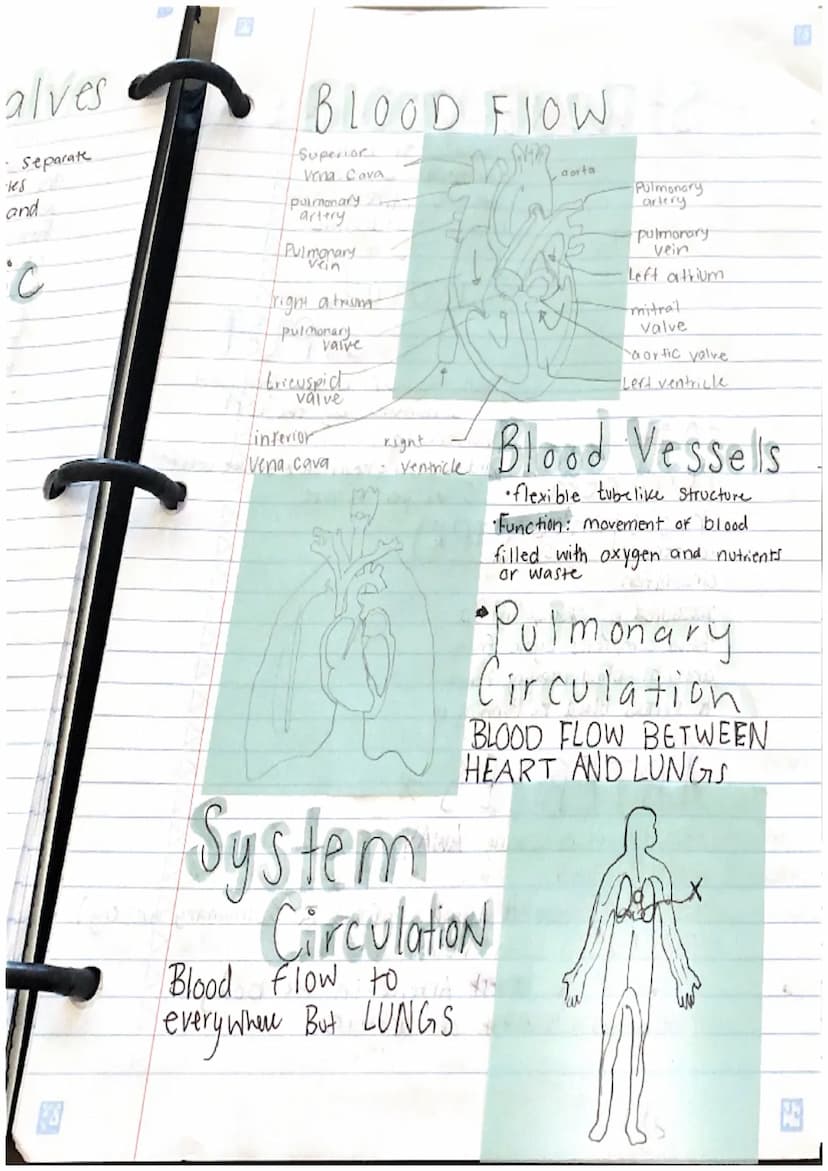 alves
separate
and
BLOOD FLOW
Superior
vena cava
pulmonary
artery
Pulmonary
vein
right atrium
pulmonary
valve
tricuspid
valve
inferior
vena cava
right
ventricle
aorta
Pulmonary
artery
pulmonary
vein
Left atrium
mitral
valve
aortic valve
Left ventricle
Blood Vessels
•flexible tubelike structure
•Function: movement of blood
filled with oxygen and nutrients
or waste
•Pulmonary
Circulation
BLOOD FLOW BETWEEN
HEART AND LUNGS
System
Circulation
Blood flow to
everywhere But LUNGS
X